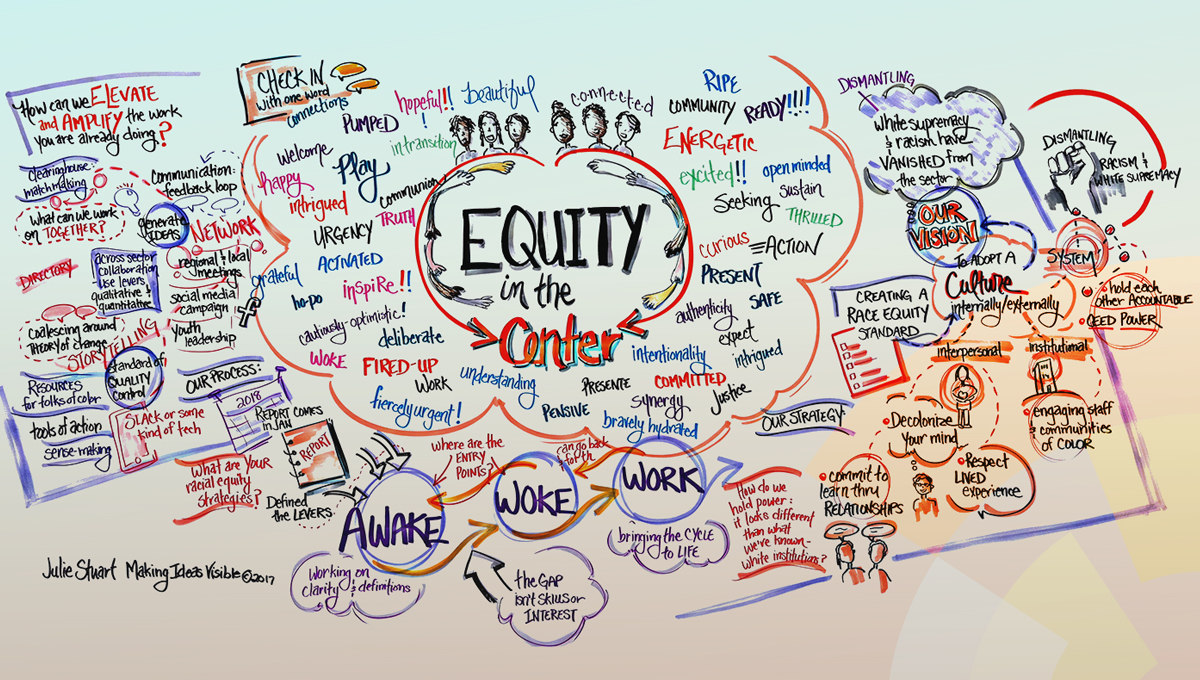 How can we ELEVATE
and AMPLIFY the work
you are already doing?
clearinghouse:
matchmaking
communication:
feedback loop
what can we work
on TOGETHER?
generate
IDEAS
NETWORK
DIRECTORY
across sector
collaboration
use levers,
qualitative &
quantitative
regional & local
meetings
social media
campaign
f
youth
leadership
Coalescing around
THEORY of change
STORYTELLING
standard of
QUALITY
Control
RESOURCES
for folks of color
tools of action
sense-making
SLACK or some
kind of tech
OUR PROCESS:
2018
REPORT COMES
IN JAN
REPORT
What are YOUR
racial equity
strategies?
Defined
the LEVERS
CHECK IN
with one word
connections
hopeful!!
!
beautiful
connected
PUMPED
in transition
welcome
Play
happy
communion
intrigued
TRUTH
URGENCY
ACTIVATED
grateful
inspiRe!!
ho-po
cautiously-optimistic!
deliberate
WOKE
FIRED-UP
WORK
understanding
fiercely urgent!
RIPE
COMMUNITY
READY!!!!
ENERGETIC
excited!!
open minded
sustain
Seeking
THRILLED
curious
ACTION
PRESENT
SAFE
authenticity
expect
intentionality
intrigued
PRESENTE
COMMITTED
synergy
Justice
PENSIVE
bravely hydrated
EQUITY
in the
Center
AWAKE
WOKE
WORK
where are the
ENTRY
POINTS?
can go back
& forth
Working on
clarity & definitions
the GAP
isn't SKILLS or
INTEREST
bringing the CYCLE
to LIFE
OUR STRATEGY
How do we
hold power:
it looks different
than what
we're known-
white institutions?
DISMANTLING
white supremacy
& racism have
VANISHED from
the sector
DISMANTLING
RACISM &
WHITE SUPREMACY
OUR
VISION
TO ADOPT A
Culture
internally/externally
SYSTEM
hold each
other ACCOUNTABLE
CEED POWER
CREATING A
RACE EQUITY
STANDARD
interpersonal
institutional
Decolonize
Your mind
engaging staff
& communities
of COLOR
commit to
learn thru
RELATIONSHIPS
Respect
LIVED
experience
Julie Stuart Making Ideas Visible © 2017